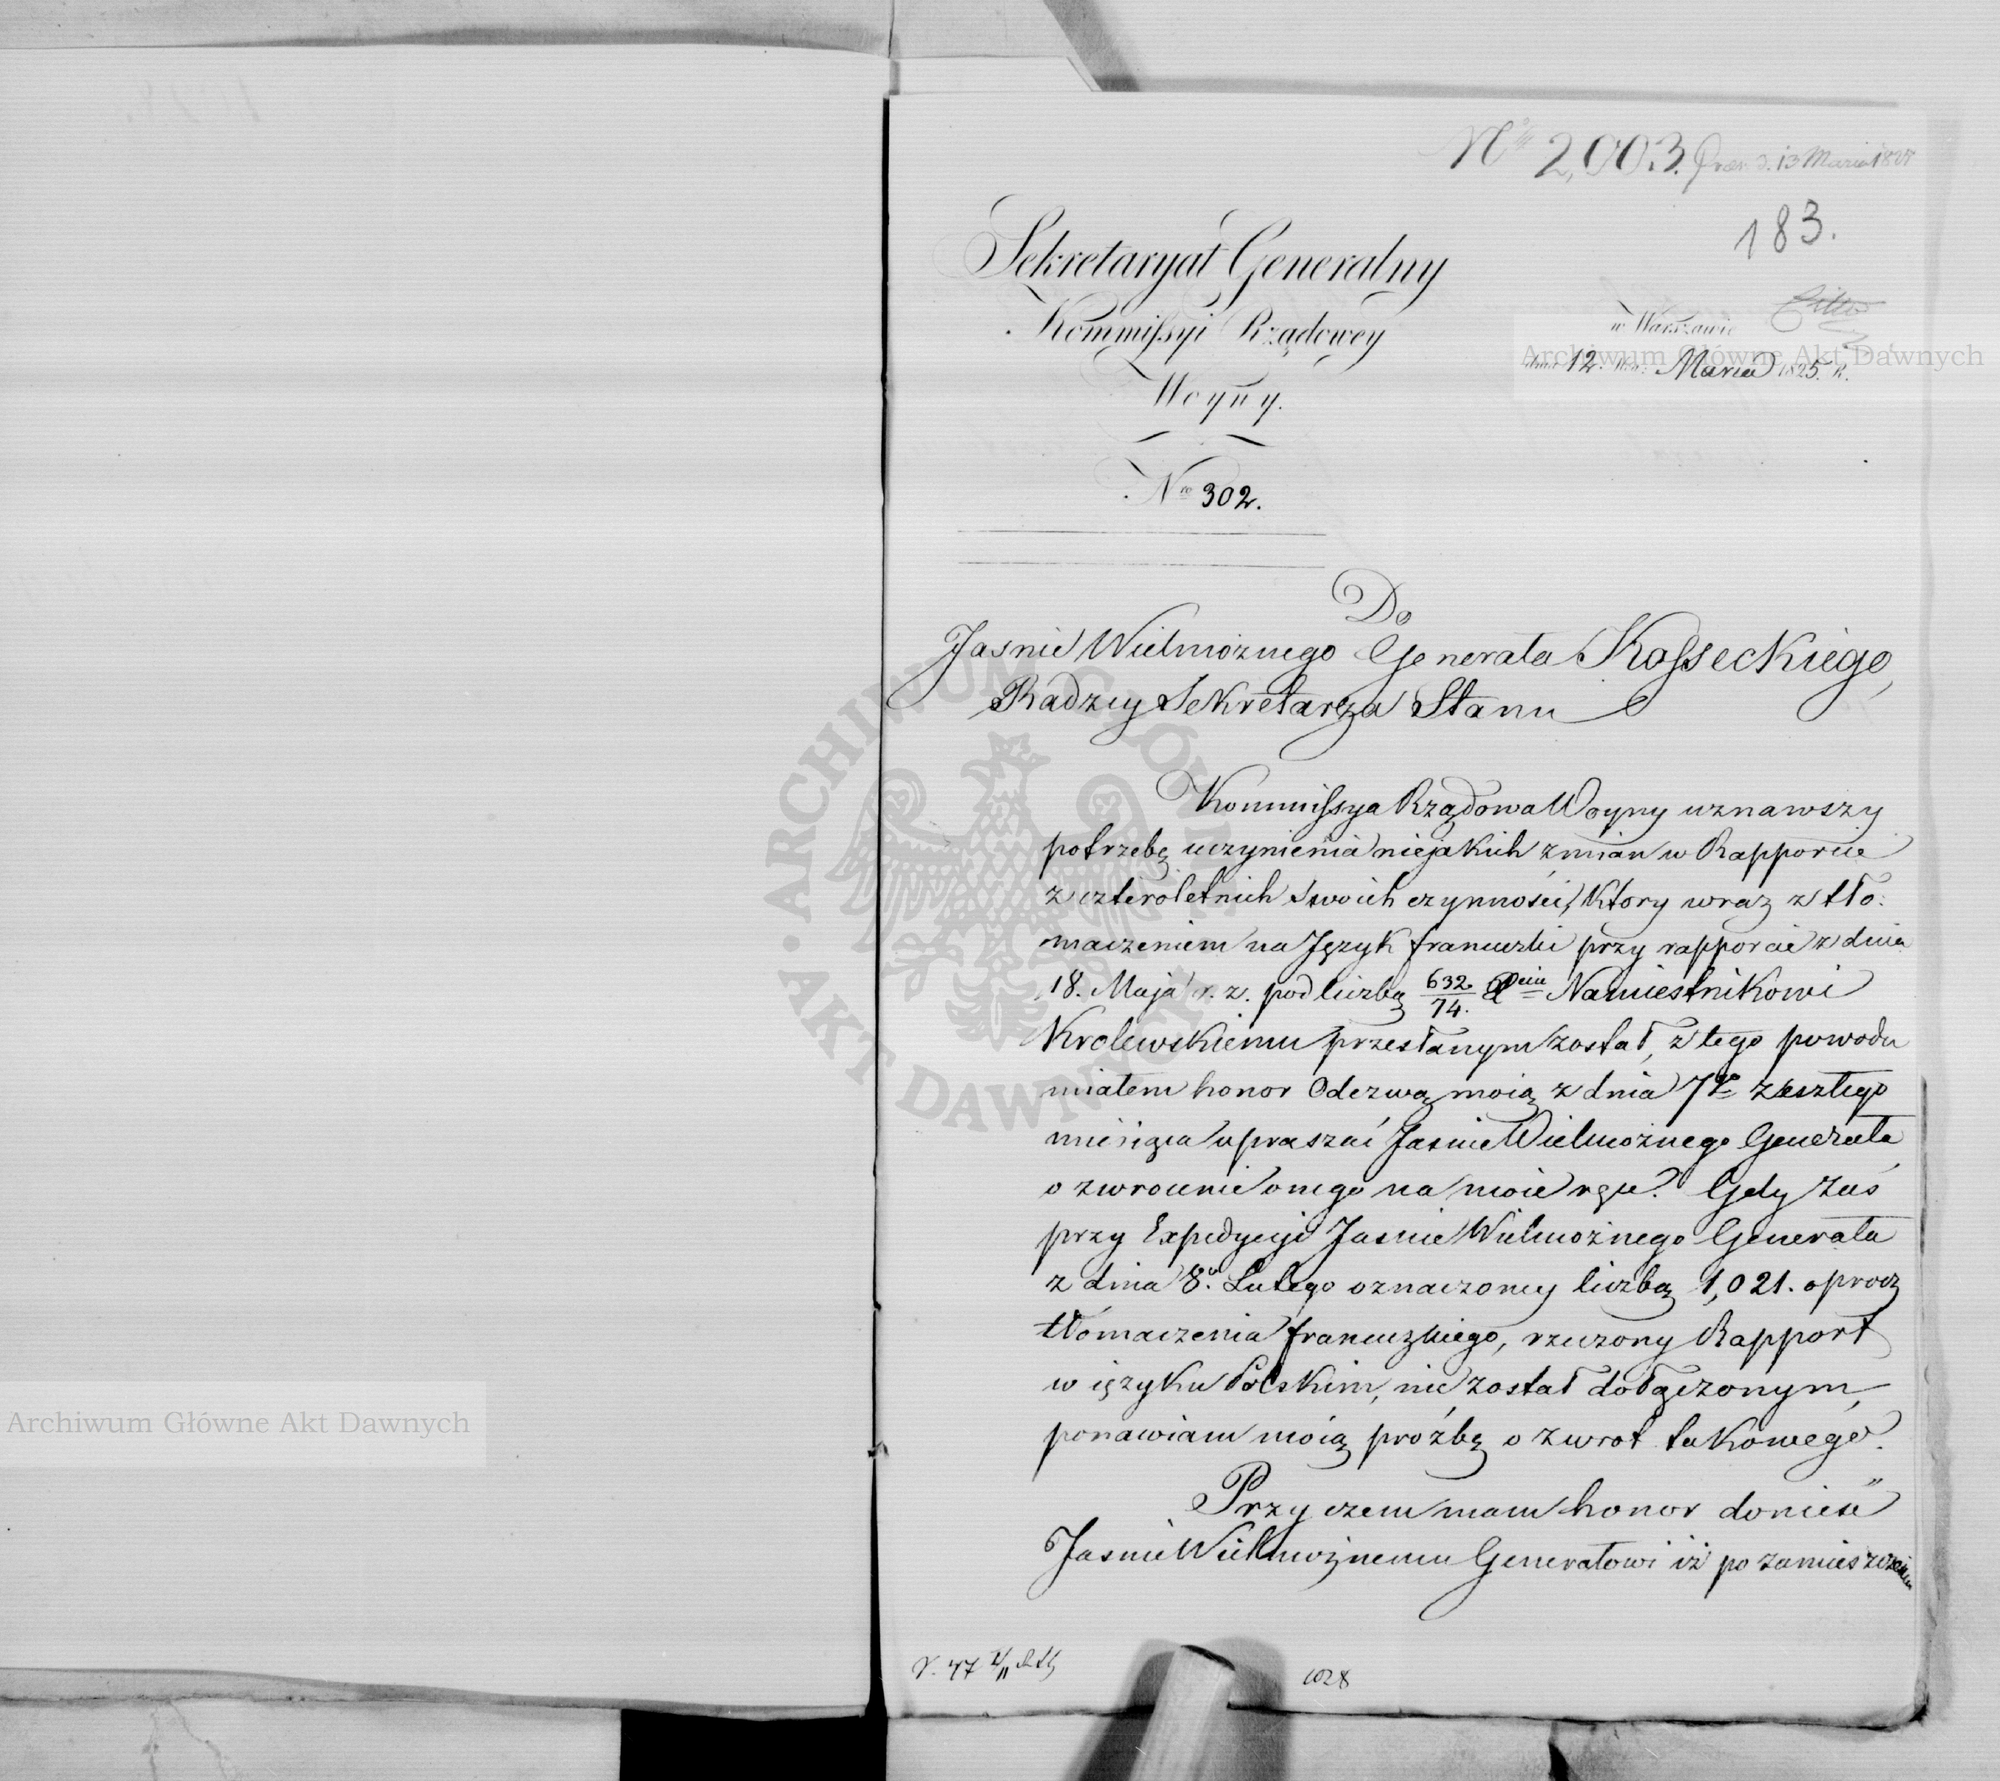 Nº 2,003. Praes. d. 13 Marca 1825
183.
Sekretaryat Generalny
Kommissyi Rządowey
Woyny.
Nro 302.
w Warszawie
dnia 12. Mca: Marca 1825. R.
Do
Jasnie Wielmożnego Generała Kosseckiego,
Radzcy Sekretarza Stanu
Kommissya Rządowa Woyny uznawszy
potrzebę uczynienia niejakich zmian w Rapporcie
z czteroletnich swoich czynności, ktory wraz z tło-
maczeniem na Język francuzki przy rapporcie z dnia
18. Maja r. z. pod liczbą 632./74. Xciu Namiestnikowi
Krolewskiemu przesłanym został, z tego powodu
miałem honor Odezwą moią z dnia 7go zeszłego
miesiąca upraszać Jasnie Wielmożnego Generała
o zwrocenie onego na moie ręce. Gdy zaś
przy Expedycyi Jasnie Wielmożnego Generała
z dnia 8o. Lutego oznaczoney liczbą 1,021. oprocz
tłomaczenia francuzkiego, rzeczony Rapport
w ięzyku Polskim, nie został dołączonym,
ponawiam moią prożbę o zwrot takowego.
Przy czem mam honor donieść
Jasnie Wielmożnemu Generałowi iż po zamieszczeniu
1028
Archiwum Główne Akt Dawnych
Archiwum Główne Akt Dawnych
ARCHIWUM GŁÓWNE • AKT DAWNYCH •